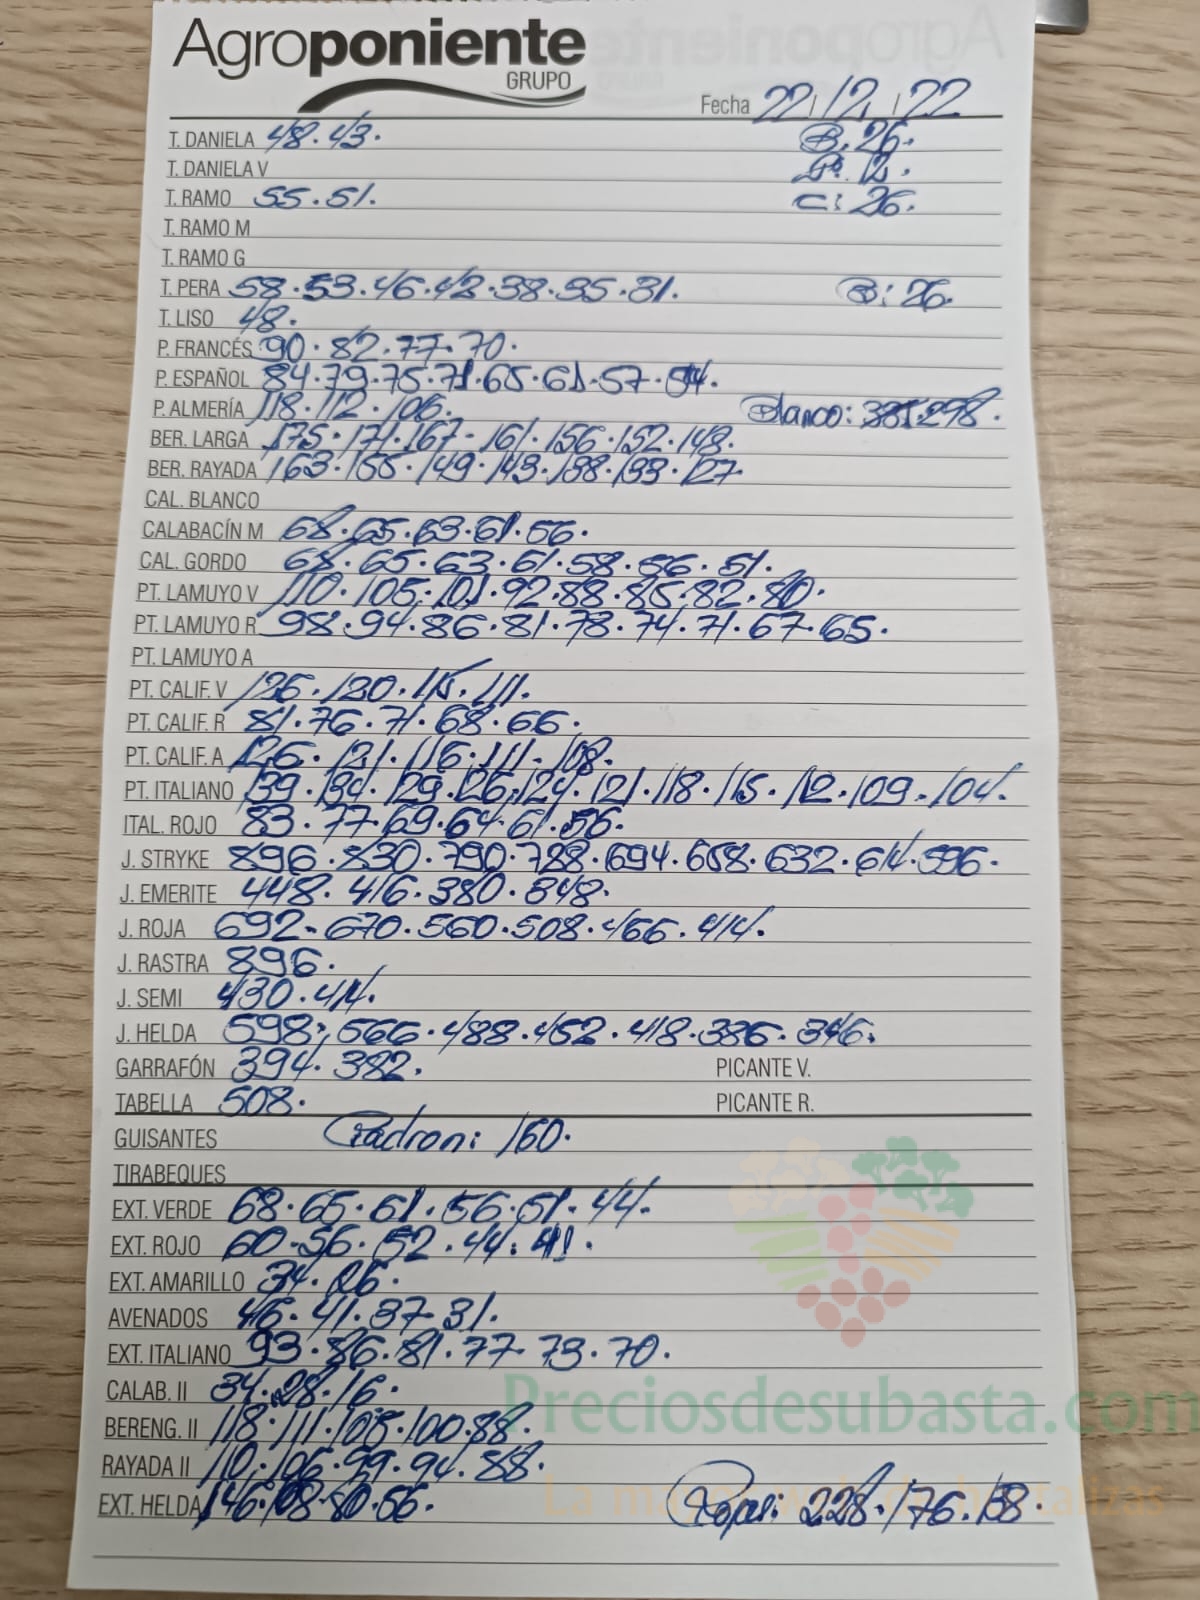 Agroponiente
GRUPO
Fecha 22/2/22
T. DANIELA 48.43. B.26.
T. DANIELA V P: 12.
T. RAMO 55.51. C: 26.
T. RAMO M
T. RAMO G
T. PERA 58.53.46.42.38.35.31. B: 26.
T. LISO 48.
P. FRANCÉS 90.82.77.70.
P. ESPAÑOL 84.79.75.71.65.61.57.54.
P. ALMERÍA 118.112.106. Blanco: 381.298.
BER. LARGA 175.171.167-161.156.152.148.
BER. RAYADA 163.155.149.143.138.133.127
CAL. BLANCO
CALABACÍN M 68.65.63.61.56.
CAL. GORDO 68.65.63.61.58.56.51.
PT. LAMUYO V 110.105.101.92.88.85.82.80.
PT. LAMUYO R 98.94.86.81.78.74.71.67.65.
PT. LAMUYO A
PT. CALIF. V 126.120.115.111.
PT. CALIF. R 81.76.71.68.66.
PT. CALIF. A 126.121.116.111.108.
PT. ITALIANO 139.134.129.126.124.121.118.115.112.109.104.
ITAL. ROJO 83.77.69.64.61.56.
J. STRYKE 896.830.790.728.694.658.632.614.596.
J. EMERITE 448.416.380.348.
J. ROJA 692-670.560.508.466.414.
J. RASTRA 896.
J. SEMI 430.414.
J. HELDA 598.566.488.452.418.386.346.
GARRAFÓN 394.382. PICANTE V.
TABELLA 508. PICANTE R.
GUISANTES Padron: 160.
TIRABEQUES
EXT. VERDE 68.65.61.56.51.44.
EXT. ROJO 60.56.52.44.41.
EXT. AMARILLO 34.26.
AVENADOS 46.41.37.31.
EXT. ITALIANO 93.86.81.77-73.70.
CALAB. II 34.28.16.
Preciosdesubasta.com
BERENG. II 118.111.105.100.88.
RAYADA II 110.106.99.94.88.
EXT. HELDA 146.108.80.56. 228.176.138.
La